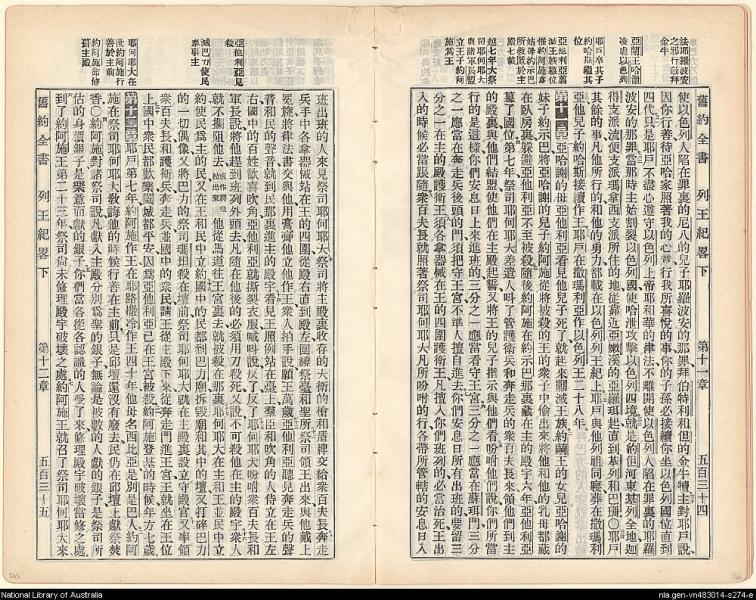 法耶羅波安
之邪行敬拜
金牛
亞蘭王哈泄
凌虐以色列
耶戶卒其子
約哈斯繼其
位
亞他利亞篡
滅王族篡位
惟約施
姑母約示巴
所救匿於主
殿七載
越七年大祭
司耶何耶大
與諸軍長盟
立王子約阿
施爲王
舊約全書 列王紀畧下 第十一章 五百三十四
使以色列人陷在罪裏的尼八的兒子耶羅波安的那罪拜伯特利和但的金牛犢主對耶戶說
因你行善待亞哈家照著我的心意行我所喜悅的事你的子孫必接續你坐以色列國位直到
四代只是耶戶不盡心遵守以色列上帝耶和華的律法不離開使以色列人陷在罪裏的耶羅
波安的那罪當那時主始割裂以色列國使哈泄攻擊以色列四境就是約但河東基列全地迦
得支派流便支派瑪拿西支派所住的地從靠近亞嫩溪的亞羅珥起直到基列和巴珊〇耶戶
其餘的事凡他所行的和他的勇力都載在以色列列王紀上耶戶與他列祖同寢葬在撒瑪利
亞他兒子約哈斯接續作王耶戶在撒瑪利亞作以色列王二十八年
第十一章 亞哈謝的母亞他利亞看見他兒子死了就起來勦滅王族約蘭王的女兒亞哈謝的
妹子約示巴將亞哈謝的兒子約阿施從被殺的王的衆子中偷出來將他和他的乳母都藏
在臥房裏躲避亞他利亞不至被殺隨後約阿施在約示巴那裏藏在主的殿宇六年亞他利亞
篡了國位第七年祭司耶何耶大差遣人叫了管護衛兵和奔走兵的衆百夫長來領他們到主
的殿裏與他們結盟使他們在主殿起誓又將王的兒子指示與他們看吩咐他們說你們所當
行的是這樣你們安息日上來進班的三分之一應當看守王宮三分之一應當在蘇珥門三分
之一應當在奔走兵後頭的門須把守王宮不准人擅自進去你們安息日所有出班的要留三
分之一在主的殿護衛王須各拿器械在王的四圍護衛王凡擅入你們班列的必當治死王出
入的時候必當跟隨衆百夫長就照著祭司耶何耶大凡所吩咐的行各帶所管轄的安息日入
亞他利亞見
殺
滅巴力使民
奉事主
耶何耶大在
世約阿施行
善於主前
約阿施命修
葺主殿
班出班的人來見祭司耶何耶大祭司將主殿裏收存的大衛的槍和盾牌交給衆百夫長奔走
兵手中各拿器械站在王的四圍從殿右直到殿左圍繞祭臺和聖所祭司領王出來與他戴上
冕旒將律法書交與他用膏膏他立他作王衆人拍手說願王萬歲亞他利亞聽見奔走兵的聲
音和民的聲音就到民那裏進主的殿宇看見王照例站在臺上羣臣和吹角的人侍立在王左
右國中的百姓歡喜吹角亞他利亞就撕裂衣服喊叫說反了反了耶何耶大吩咐衆百夫長和
軍長說將他趕到班列外頭去凡隨在他後的必須用刀殺死又說不可殺他在主的殿宇衆人
就不攔阻他去 他從馬道往王宮裏去就被殺在那裏耶何耶大在主和王並民中立
約使民爲主的民又在王和民中立約國中的民都到巴力廟拆毀廟和其中的壇又打碎巴力
的一切偶像又將巴力的祭司瑪坦殺在壇前祭司耶何耶大就在主殿裏設立守殿官又率領
衆百夫長和護衛兵奔走兵並國中的衆民請王從主殿下來從奔走門進王宮王就坐在王位
上國中衆民都歡樂闔城都平安因爲亞他利亞已在王宮被殺約阿施登基的時候年方七歲
第十二章 耶戶第七年約阿施作王在耶路撒冷作王四十年他母名西比亞是別是巴人約阿
施在祭司耶何耶大教誨他的時候行善在主前只是邱壇還沒有廢去民仍在邱壇上獻祭焚
香〇約阿施對諸祭司說凡獻入主殿分別爲聖的銀子無論是被數的人獻的銀子是祭司所
估的身價銀子是樂意而獻的銀子你們當各從各認識的人受了來修理殿宇破壞當修之處
到了約阿施王第二十三年祭司尚未修理殿宇破壞之處約阿施王就召了祭司耶何耶大來
舊約全書 列王紀畧下 第十二章 五百三十五
National Library of Australia
nla.gen-vn483014-s274-e